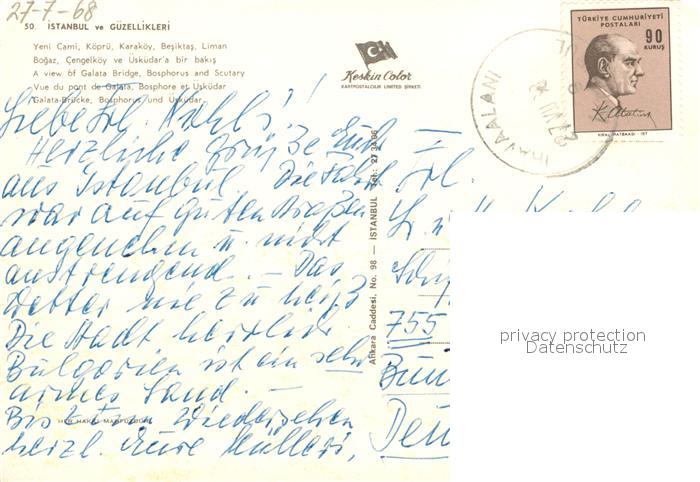 27-7-68
50. İSTANBUL ve GÜZELLİKLERİ
Yeni Cami, Köprü, Karaköy, Beşiktaş, Liman
Boğaz, Çengelköy ve Üsküdar'a bir bakış
A view of Galata Bridge, Bosphorus and Scutary
Vue du pont de Galata, Bosphore et Usküdar
Galata-Brücke, Bosphorus und Üsküdar
Keskin Color
KARTPOSTALCILIK LIMITED ŞİRKETİ
TÜRKİYE CUMHURİYETİ
POSTALARI
90
KURUŞ
K. Atatürk
HAVAALANI
Liebe
Herzliche Grüße Euch
aus Istanbul. Die Fahrt
war auf guten Straßen
angenehm u. nicht
anstrengend. – Das
Wetter nie zu heiß
Die Stadt herrlich
Bulgarien ist ein sehr
armes Land. –
Bis zum Wiedersehen
herzl. Eure
HER HAKKI MAHFUZDUR
Ankara Caddesi, No. 98 — İSTANBUL Tel.:
Frl.
755
Deu
privacy protection
Datenschutz